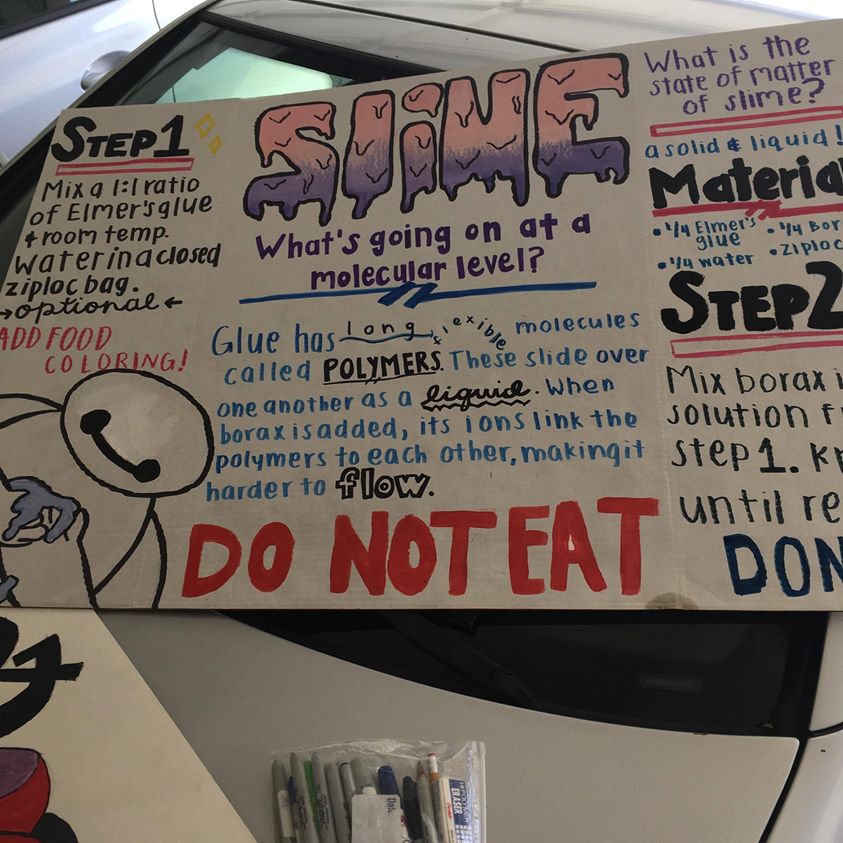 STEP 1
Mix a 1:1 ratio
of Elmer's glue
+ room temp.
water in a closed
ziploc bag.
→optional←
ADD FOOD
COLORING!
SLIME
What's going on at a
molecular level?
Glue has long, flexible molecules
called POLYMERS. These slide over
one another as a liquid. When
borax is added, its ions link the
polymers to each other, making it
harder to flow.
DO NOT EAT
What is the
state of matter
of slime?
a solid & liquid!
Materia
• 1/4 Elmer's
glue
• 1/4 water
• 1/4 Bor
• ziploc
STEP 2
Mix borax i
solution fr
step 1. Kn
until re
DON
ERASER